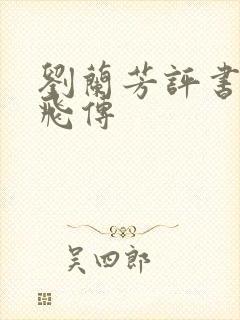 劉蘭芳評書
飛傳
吴四郎